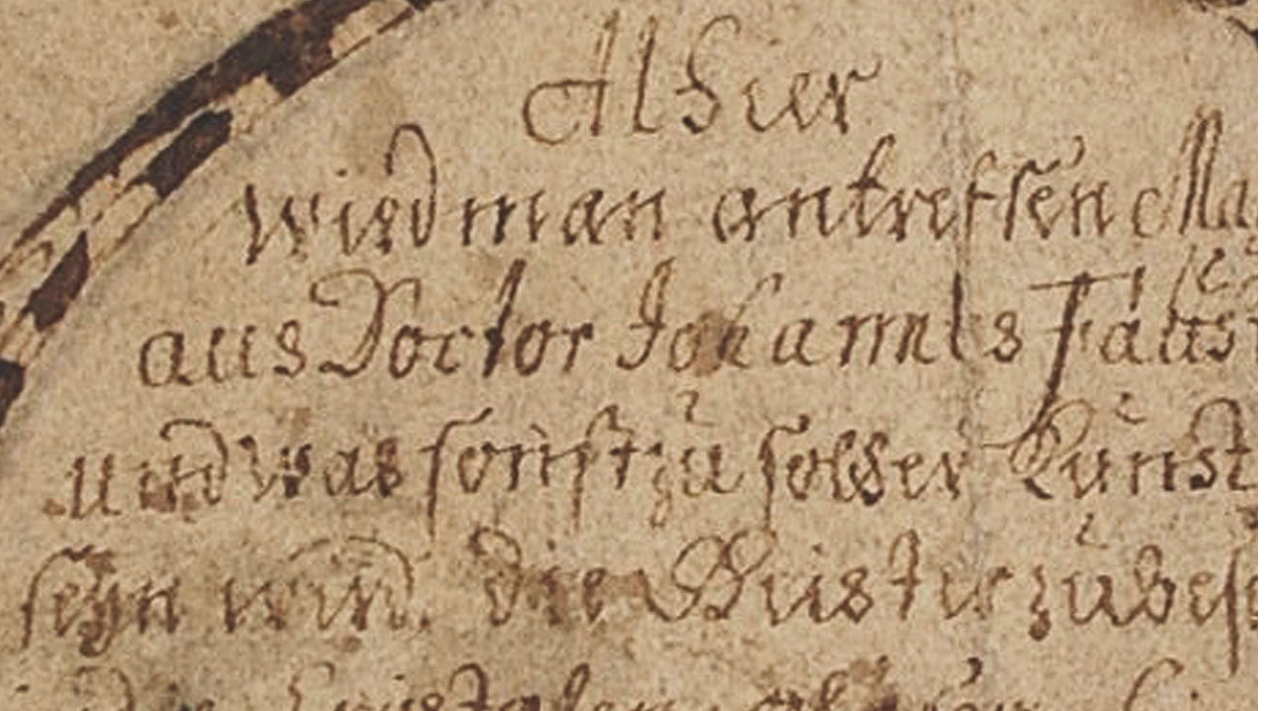 Alhier
wird man antreffen Ma
aus Doctor Johannes Faust
und was sonst zu solcher Kunst
seyn wird. die Geister zu besc
die